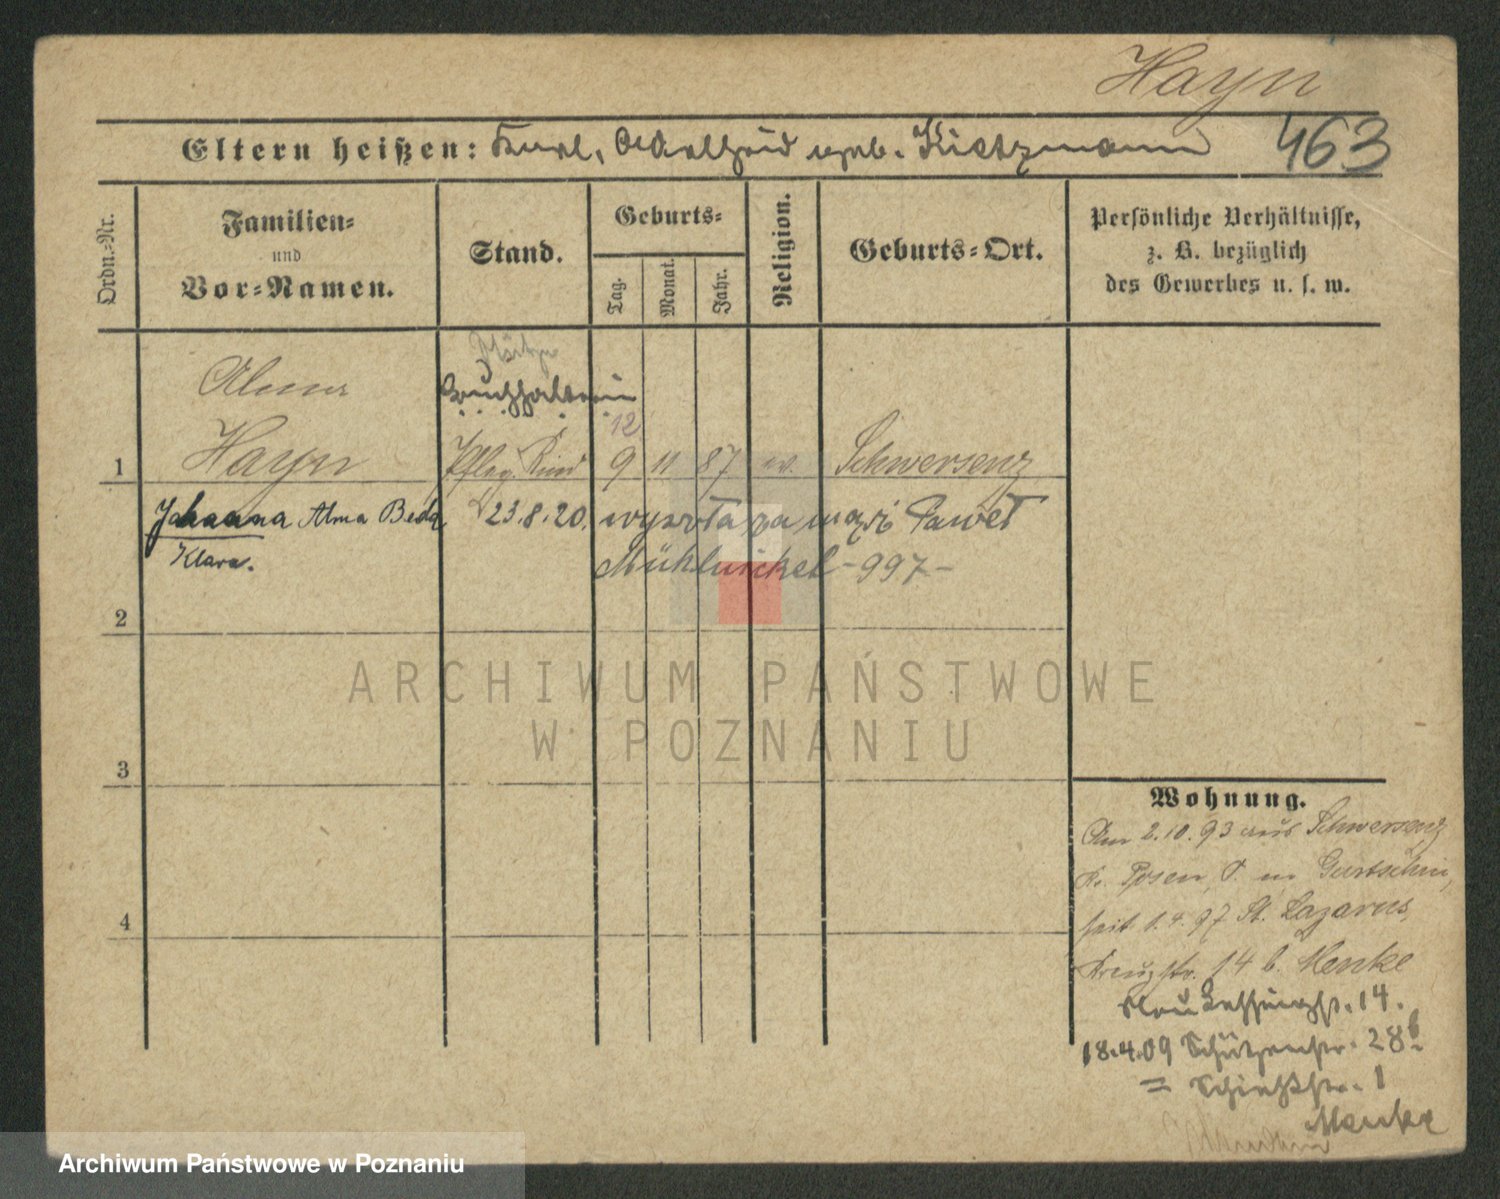 Hayn
Eltern heißen: Karl, Adelheid geb. Kietzmann 463
Ordn.=Nr.
Familien=
und
Vor=Namen.
Stand.
Geburts=
Tag.
Monat.
Jahr.
Religion.
Geburts=Ort.
Persönliche Verhältnisse,
z. B. bezüglich
des Gewerbes u. s. w.
Alma
Buchhalterin
12
1 Hayn Pfleg. Kind 9 11 87 ev. Schwersenz
Johanna Alma Beda 23.8.20. wyszła za mąż Paweł
Klara. Mühlnickel -997-
2
3
4
ARCHIWUM PAŃSTWOWE
W POZNANIU
Wohnung.
Am 2.10.93 aus Schwersenz
Kr. Posen, P. in Gurtschin,
seit 1.4.97 St. Lazarus,
Kreuzstr. 14 b. Menke
Neu Lessingstr. 14.
18.4.09 Schützenstr. 28b
= Schießstr. 1
Menke
Archiwum Państwowe w Poznaniu